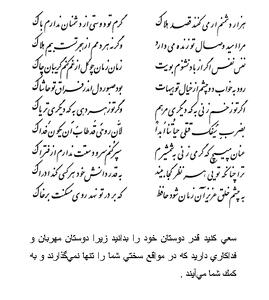 هزار دشمنم ار می‌کنند قصد هلاک
گرم تو دوستی از دشمنان ندارم باک
مرا امید وصال تو زنده می‌دارد
وگرنه هر دمم از هجر تست بیم هلاک
نفس نفس اگر از باد نشنوم بویت
زمان زمان چو گل از غم کنم گریبان چاک
رود به خواب دو چشم از خیال تو هیهات
بود صبور دل اندر فراق تو حاشاک
اگر تو زخم زنی به که دیگری مرهم
وگر تو زهر دهی به که دیگری تریاک
بضرب سیفک قتلی حیاتنا ابدا
لأن روحی قد طاب ان یکون فداک
عنان مپیچ که گر می‌زنی به شمشیرم
سپر کنم سر و دستت ندارم از فتراک
ترا چنانکه تویی هر نظر کجا بیند
به قدر دانش خود هر کسی کند ادراک
به چشم خلق عزیز آن زمان شود حافظ
که بر در تو نهد روی مسکنت بر خاک
سعی کنید قدر دوستان خود را بدانید زیرا دوستان مهربان و
فداکاری دارید که در مواقع سختی شما را تنها نمی‌گذارند و به
کمک شما می‌آیند .